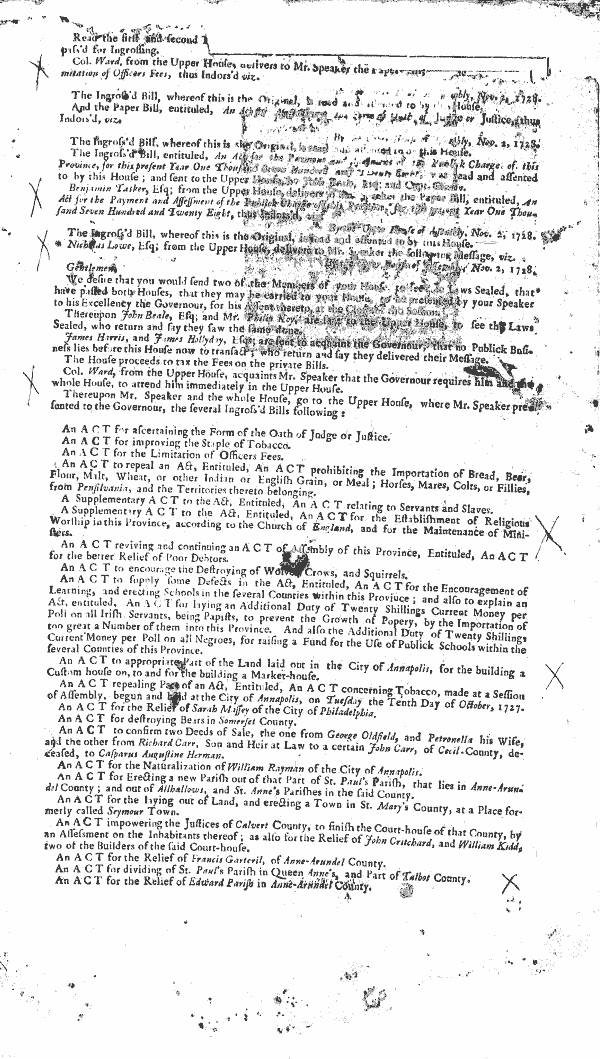 Read the first and second
pass'd for Ingrossing.
Col. Ward, from the Upper House, delivers to Mr. Speaker the Paper
mitation of Officers Fees, thus Indors'd viz.
The Ingross'd Bill, whereof this is the Original, is read and assented to by House. Nov. 2, 1728.
And the Paper Bill, entituled, An Act of Judge or Justice, thus
Indors'd, viz.
Nov. 2, 1728.
The Ingross'd Bill, whereof this is the Original, is read and assented to by this House.
The Ingross'd Bill, entituled, An Act for the Payment and Assessment of the Publick Charge of this
Province, for this present Year One Thousand Seven Hundred and Twenty Eight, was read and assented
to by this House; and sent to the Upper House, by John Beale, Esq; and Capt.
Benjamin Tasker, Esq; from the Upper House, delivers to Mr. Speaker the Paper Bill, entituled, An
Act for the Payment and Assessment of the Publick Charge of this Province, for this present Year One Thou-
sand Seven Hundred and Twenty Eight, thus Indors'd, viz.
By the Upper House of Assembly, Nov. 2, 1728.
The Ingross'd Bill, whereof this is the Original, is read and assented to by this House.
Nicholas Lowe, Esq; from the Upper House, delivers to Mr. Speaker the following Message, viz.
By the Upper House of Assembly, Nov. 2, 1728.
Gentlemen,
We desire that you would send two of the Members of your House, to see the Laws Sealed, that
have passed both Houses, that they may be carried to your House, to be presented by your Speaker
to his Excellency the Governour, for his Assent thereto, at the Close of this Session.
Thereupon John Beale, Esq; and Mr. Philip Key, are sent to the Upper House, to see the Laws
Sealed, who return and say they saw the same done.
James Harris, and James Hollyday, Esq; are sent to acquaint the Governour, that no Publick Busi-
ness lies before this House now to transact; who return and say they delivered their Message.
The House proceeds to tax the Fees on the private Bills.
Col. Ward, from the Upper House, acquaints Mr. Speaker that the Governour requires him and the
whole House, to attend him immediately in the Upper House.
Thereupon Mr. Speaker and the whole House, go to the Upper House, where Mr. Speaker pre-
sented to the Governour, the several Ingross'd Bills following:
An ACT for ascertaining the Form of the Oath of Judge or Justice.
An ACT for improving the Staple of Tobacco.
An ACT for the Limitation of Officers Fees.
An ACT to repeal an Act, Entituled, An ACT prohibiting the Importation of Bread, Beer,
Flour, Malt, Wheat, or other Indian or English Grain, or Meal; Horses, Mares, Colts, or Fillies,
from Pensilvania, and the Territories thereto belonging.
A Supplementary ACT to the Act, Entituled, An ACT relating to Servants and Slaves.
A Supplementary ACT to the Act, Entituled, An ACT for the Establishment of Religious
Worship in this Province, according to the Church of England, and for the Maintenance of Mini-
sters.
An ACT reviving and continuing an ACT of Assembly of this Province, Entituled, An ACT
for the better Relief of Poor Debtors.
An ACT to encourage the Destroying of Wolves, Crows, and Squirrels.
An ACT to supply some Defects in the Act, Entituled, An ACT for the Encouragement of
Learning, and erecting Schools in the several Counties within this Province; and also to explain an
Act, entituled, An ACT for laying an Additional Duty of Twenty Shillings Current Money per
Poll on all Irish Servants, being Papists, to prevent the Growth of Popery, by the Importation of
too great a Number of them into this Province. And also the Additional Duty of Twenty Shillings
Current Money per Poll on all Negroes, for raising a Fund for the Use of Publick Schools within the
several Counties of this Province.
An ACT to appropriate Part of the Land laid out in the City of Annapolis, for the building a
Custom house on, to and for the building a Market-house.
An ACT repealing Part of an Act, Entituled, An ACT concerning Tobacco, made at a Session
of Assembly, begun and held at the City of Annapolis, on Tuesday the Tenth Day of October, 1727.
An ACT for the Relief of Sarah Massey of the City of Philadelphia.
An ACT for destroying Bears in Somerset County.
An ACT to confirm two Deeds of Sale, the one from George Oldfield, and Petronella his Wife,
and the other from Richard Carr, Son and Heir at Law to a certain John Carr, of Cecil-County, de-
ceased, to Casparus Augustine Herman.
An ACT for the Naturalization of William Rayman of the City of Annapolis.
An ACT for Erecting a new Parish out of that Part of St. Paul's Parish, that lies in Anne-Arun-
del County; and out of Allhallows, and St. Anne's Parishes in the said County.
An ACT for the laying out of Land, and erecting a Town in St. Mary's County, at a Place for-
merly called Seymour Town.
An ACT impowering the Justices of Calvert County, to finish the Court-house of that County, by
an Assessment on the Inhabitants thereof; as also for the Relief of John Critchard, and William Kidd,
two of the Builders of the said Court-house.
An ACT for the Relief of Francis Garteril, of Anne-Arundel County.
An ACT for dividing of St. Paul's Parish in Queen Anne's, and Part of Talbot County.
An ACT for the Relief of Edward Parish in Anne-Arundel County.